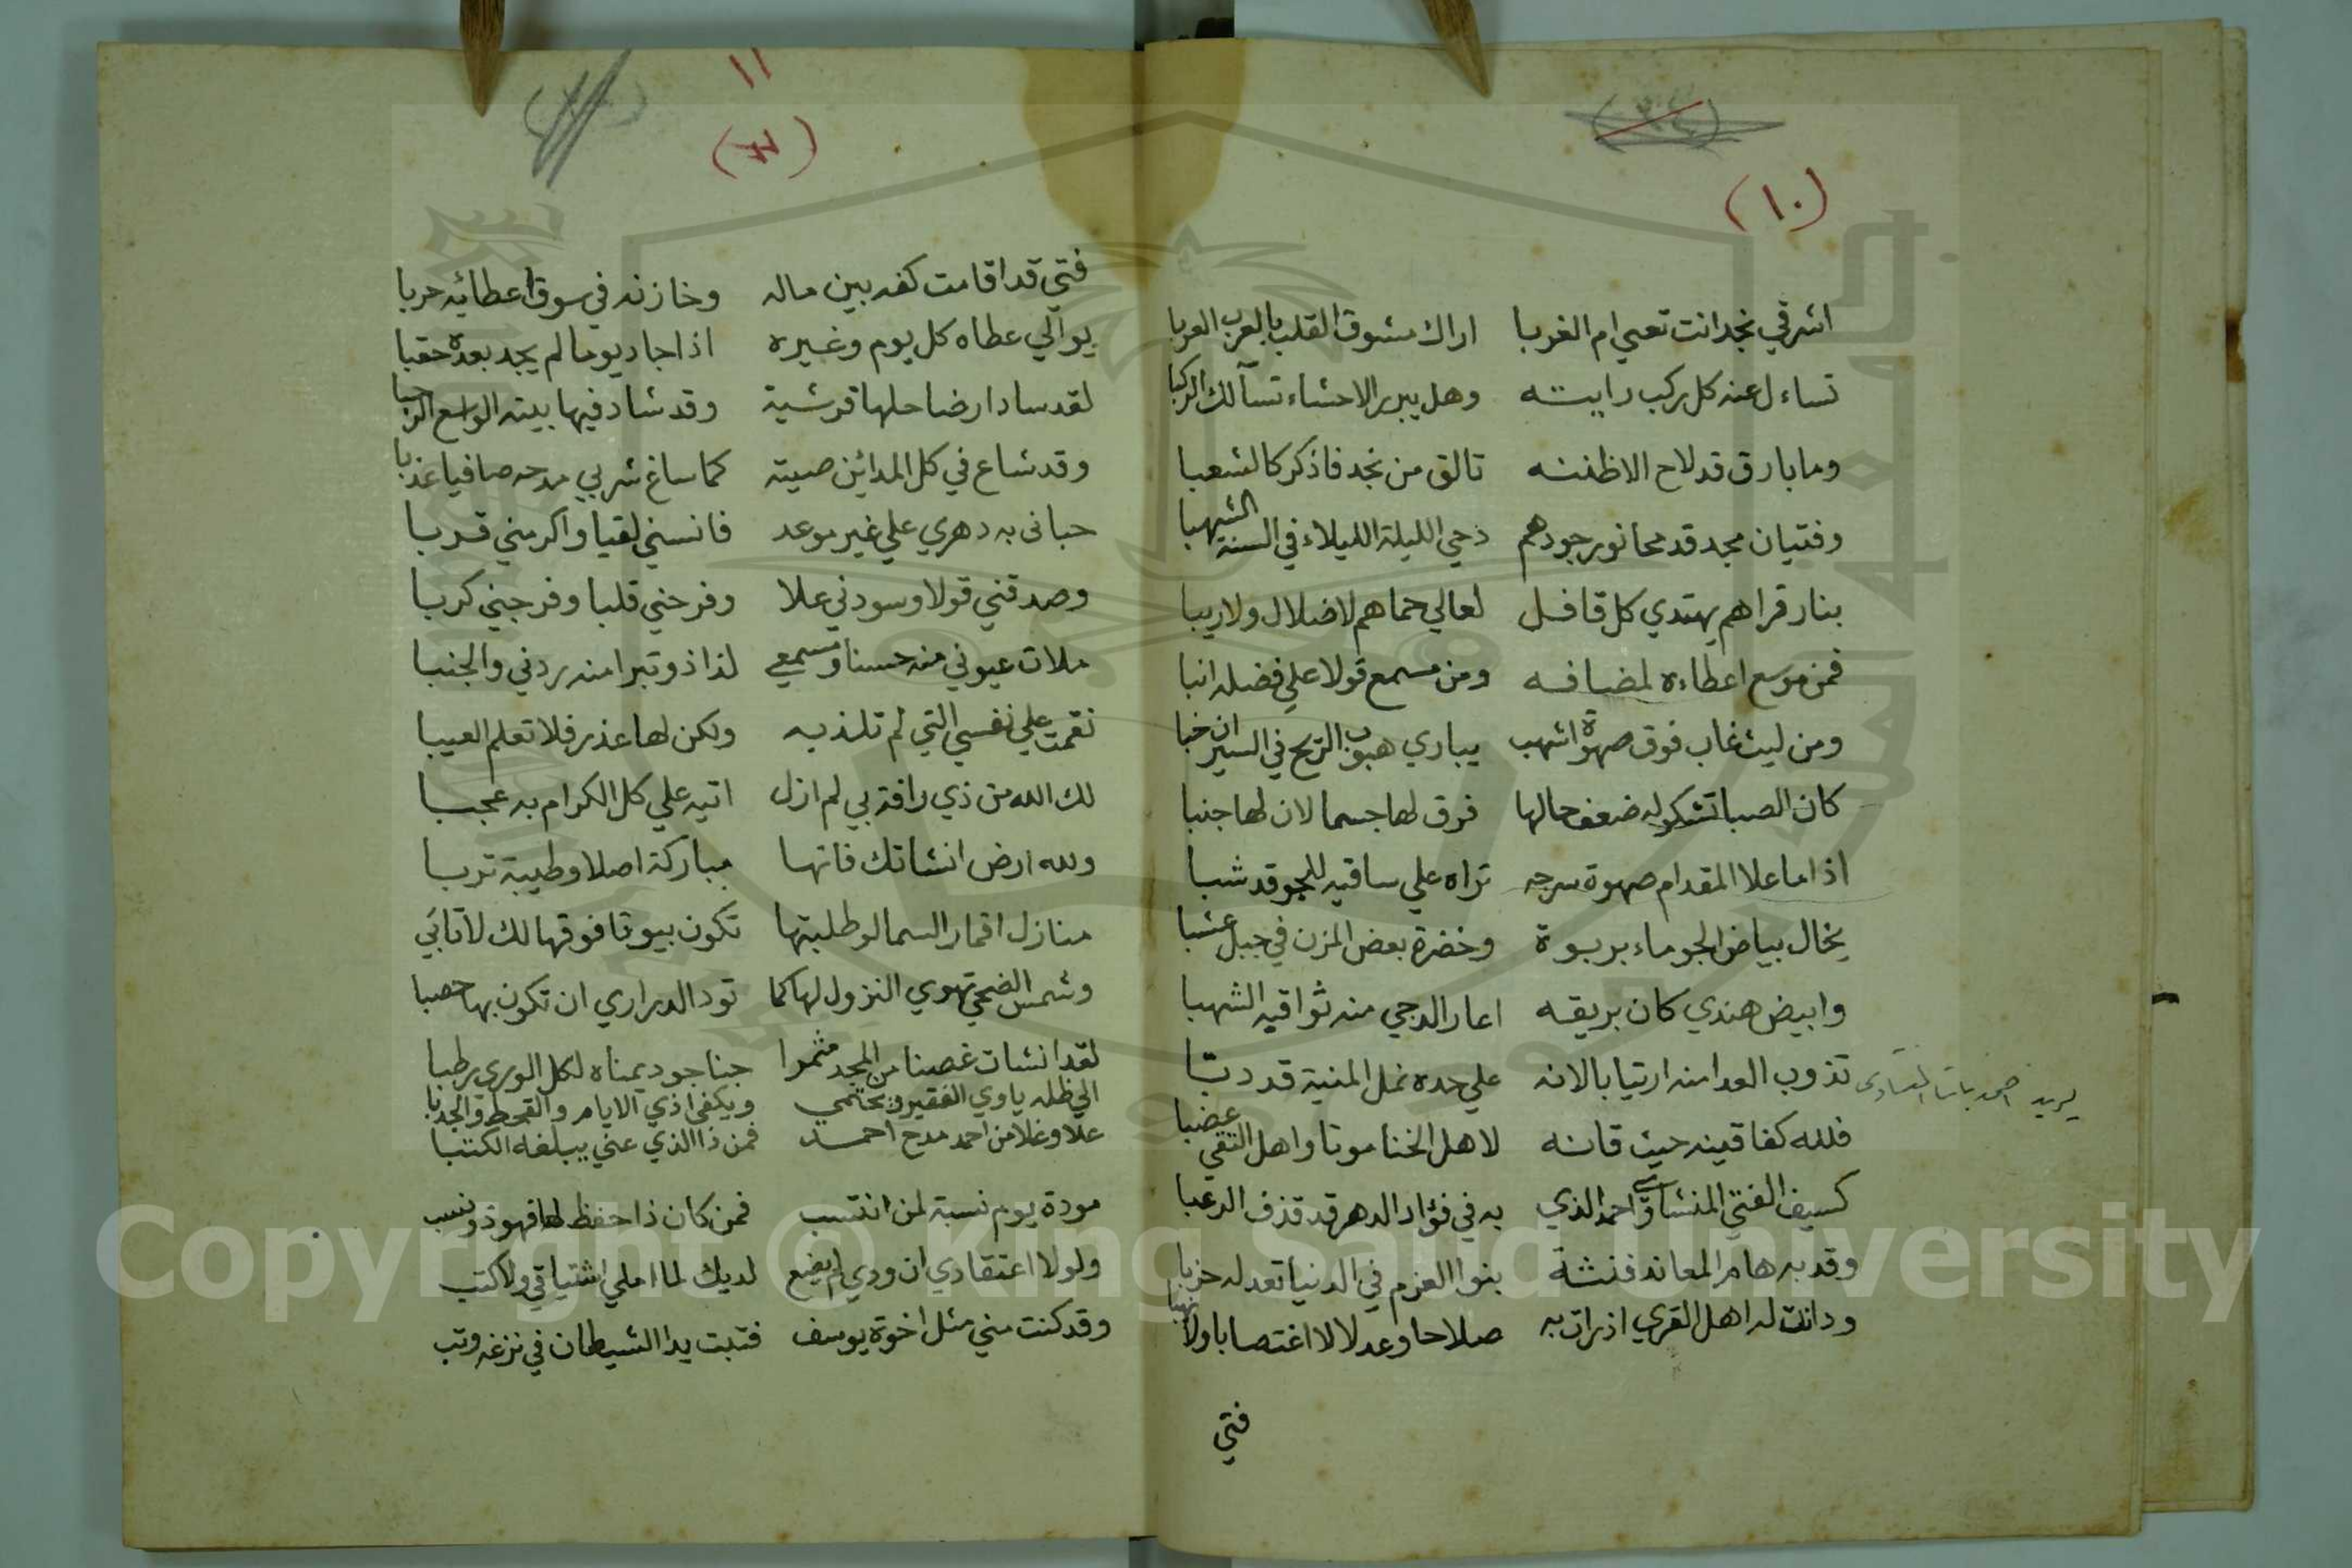 (١٠)
اشرقي نجد انت تعني ام الغربا اراك مشوق القلب بالعرب العربا
تساءل عنه كل ركب رايته وهل يبرر الاحشاء تسآلك الركبا
وما بارق قد لاح الا ظننته تالق من نجد فاذكرك الشعبا
وفتيان مجد قد محا نور جودهم دجي الليلة الليلاء في السنة الشهبا
بنار قراهم يهتدي كل قافل لعالي حماهم لا ضلال ولا ريبا
فمن موسع اعطاءه لمضافه ومن مسمع قولا علي فضله انبا
ومن ليث غاب فوق صهوة اشهب يباري هبوب الريح في السير ان خبا
كان الصبا تشكو له ضعف حالها فرق لها جسما لان لها جنبا
اذا ما علا المقدام صهوة سرجه تراه علي ساقيه للجو قد شبا
يخال بياض الجو ماء بربوة وخضرة بعض المزن في جبل عشبا
وابيض هندي كان بريقه اعار الدجي منه ثواقبه الشهبا
تذوب العدا منه ارتيابا لانه علي حده نمل المنية قد دبا
يريد احمد باشا المنشاوى
فلله كفا قينه حيث قانه لاهل الخنا موتا واهل التقي عضبا
كسيف الفتي المنشاوي احمد الذي به في فؤاد الدهر قد قذف الرعبا
وقد به هام المعاند فنشة بنوا العزم في الدنيا تعد له حزبا
ودانت له اهل القري اذ رات به صلاحا وعدلا لا اغتصابا ولا نهبا
فتي
١١
فتي قد اقامت كفه بين ماله وخازنه في سوق اعطائه حربا
يوالي عطاه كل يوم وغيره اذا جاد يوما لم يجد بعده حقبا
لقد ساد ارضا حلها قرشية وقد شاد فيها بيته الواسع الرحبا
وقد شاع في كل المدائن صيته كما ساغ شربي مدحه صافيا عذبا
حبانى به دهري علي غير موعد فانسني لقيا واكرمني قربا
وصدقني قولا وسودني علا وفرحني قلبا وفرجني كربا
ملات عيوني منه حسنا ومسمعي لذاذ وتبرا منه ردني والجنبا
نقمت علي نفسي التي لم تلذ به ولكن لها عذر فلا تعلم الغيبا
لك الله من ذي رافة بي لم ازل اتيه علي كل الكرام به عجبا
ولله ارض انشاتك فانها مباركة اصلا وطيبة تربا
منازل اقمار السما لو طلبتها تكون بيوتا فوقها لك لا تابي
وشمس الضحي تهوي النزول لها كما تود الدراري ان تكون بها حصبا
لقد انشات غصنا من المجد مثمرا جنا جود يمناه لكل الوري رطبا
الي ظله ياوي الفقير ويحتمي ويكفي اذي الايام والقحط والجدبا
علا وغلا من احمد مدح احمد فمن ذا الذي عني يبلغه الكتبا
مودة يوم نسبة لمن انتسب فمن كان ذا حفظ لها فهو ذو نسب
ولولا اعتقادي ان ودي لم يضع لديك لما املي اشتياقي ولا كتب
وقد كنت مني مثل اخوة يوسف فتبت يدا الشيطان في نزغه وتب
Copyright © King Saud University